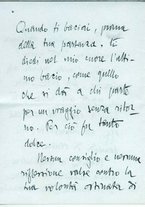 Quando ti baciai, prima
della tua partenza, te
diedi nel mio cuore l'ul-
timo bacio, come quello
che si dà a chi parte
per un viaggio senza ritor-
no. Per ciò fu tanto
dolce.
Nessun consiglio e nessuna
riflessione valse contro la
tua volontà ostinata di